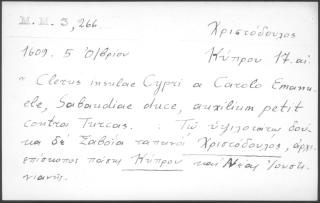 M. M. 3, 266. Χριστόδουλος
1609. 5 Ὀ/βρίου Κύπρου 17. αἰ.
" Clerus insulae Cypri a Carolo Emanu-
ele, Sabaudiae duce, auxilium petit
contra Turcas. : Τῷ ὑψιλοτάτῳ δου-
κα δὲ Σαβοία ταπινοὶ Χριστόδουλος, ἀρχι-
επίσκοπος πάσης Κύπρου καὶ Νέας Ἰουστι-
νιανῆς.